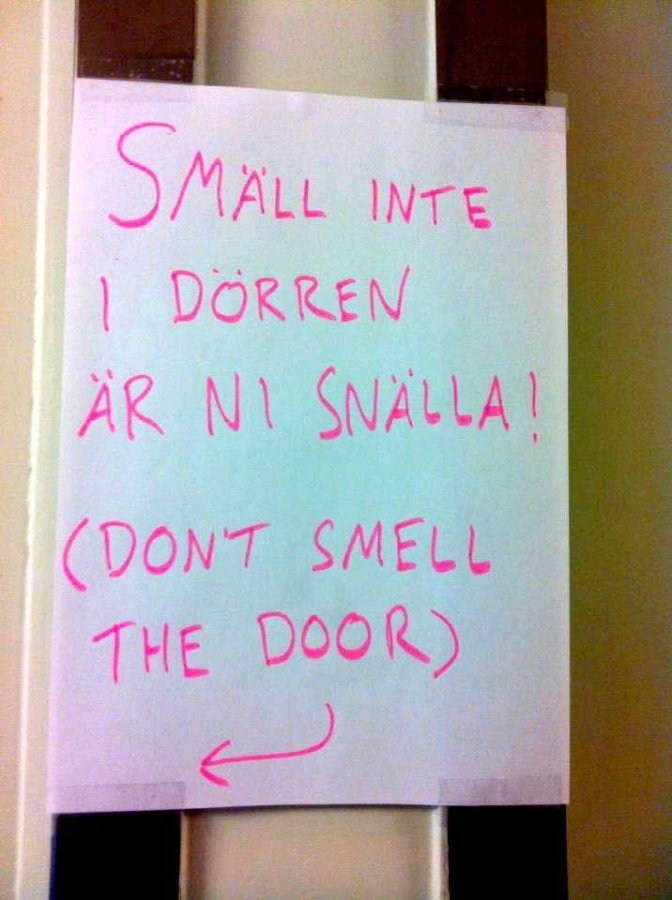 SMÄLL INTE
I DÖRREN
ÄR NI SNÄLLA!
(DON'T SMELL
THE DOOR)